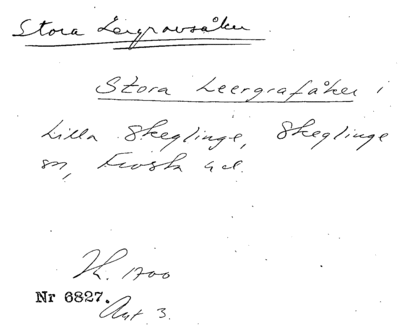 Stora Lergravsåker
Stora Leergrafåker i
Lilla Skeglinge, Skeglinge
sn, Frosta hd.
1700
Nr 6827.
Akt 3.